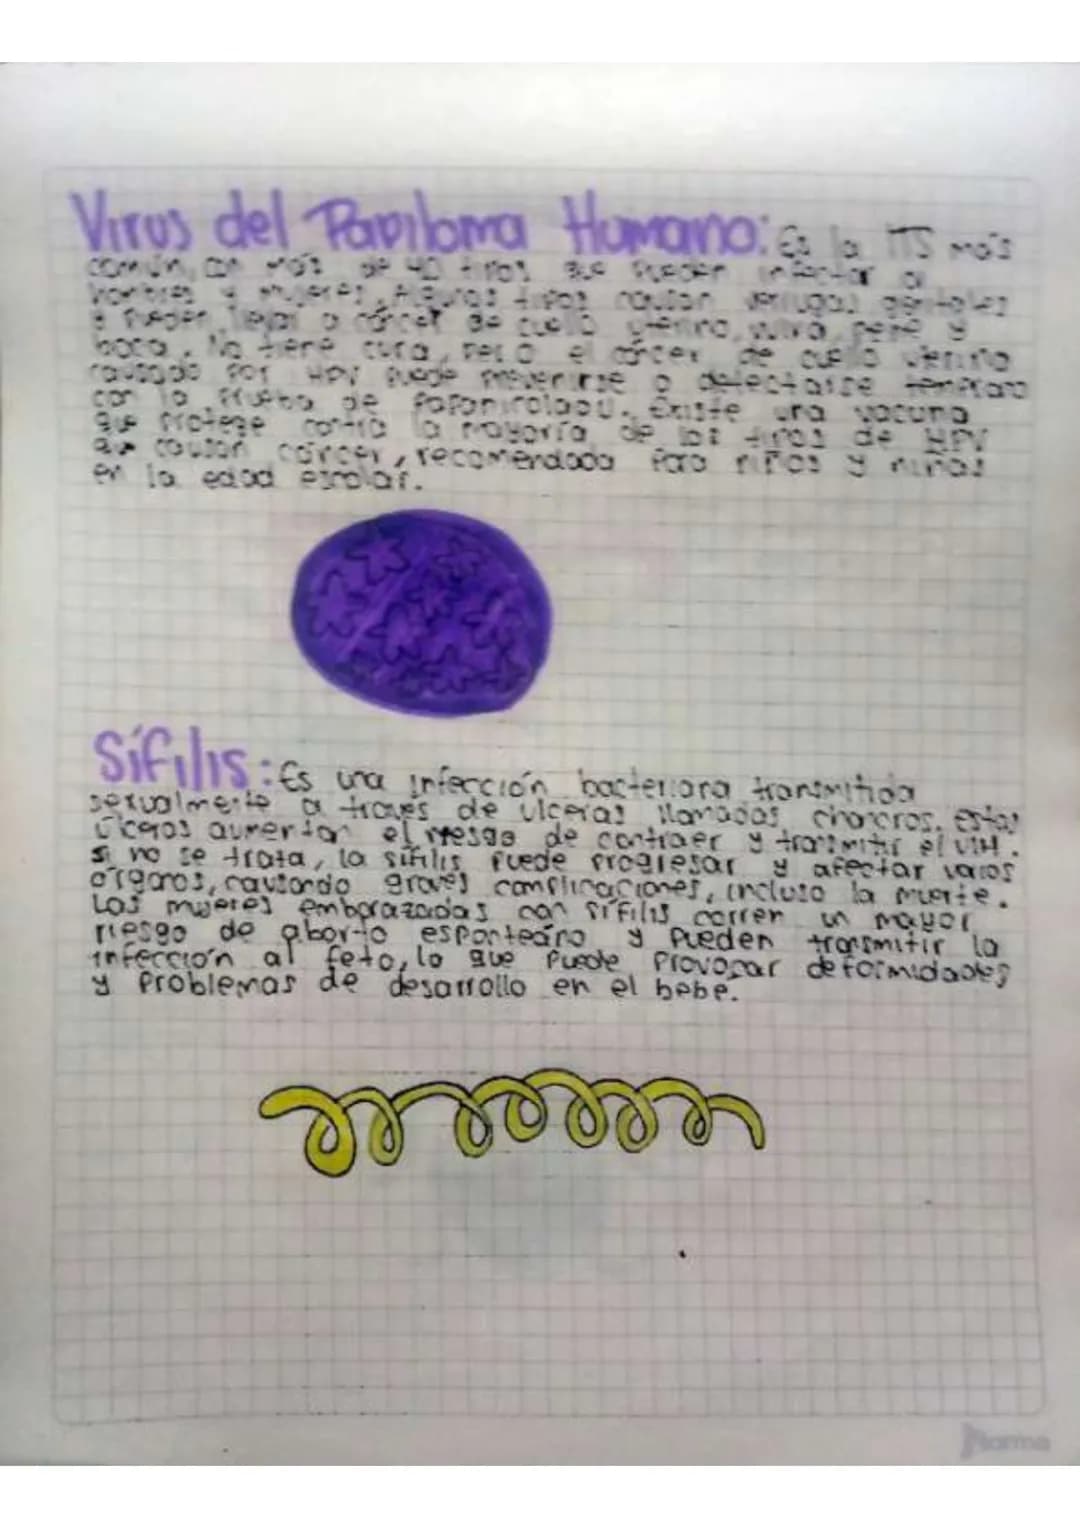 Virus del Papiloma Humano: Es la ITS más
común, con más de 40 tipos que pueden infectar a
hombres y mujeres. Algunos tipos causan verrugas genitales
y pueden llevar a cáncer de cuello uterino, vulva, pene y
boca. No tiene cura, pero el cáncer de cuello uterino
causado por HPV puede prevenirse o detectarse temprano
con la prueba de Papanicolaou. Existe una vacuna
que protege contra la mayoría de los tipos de HPV
que causan cáncer, recomendada para niños y niñas
en la edad escolar.
Sífilis: Es una infección bacteriana transmitida
sexualmente a traves de ulceras llamadas chancros. estas
Úlceras aumentan el riesgo de contraer y transmitir el VIH.
si no se trata, la sífilis puede progresar y afectar varios
órganos, causando graves complicaciones, incluso la muerte.
Las mujeres embarazadas con sífilis corren un mayor
riesgo de aborto esponteáno y pueden transmitir la
infección al feto, lo que puede provocar deformidades
y problemas de desarrollo en el bebe.
Norma